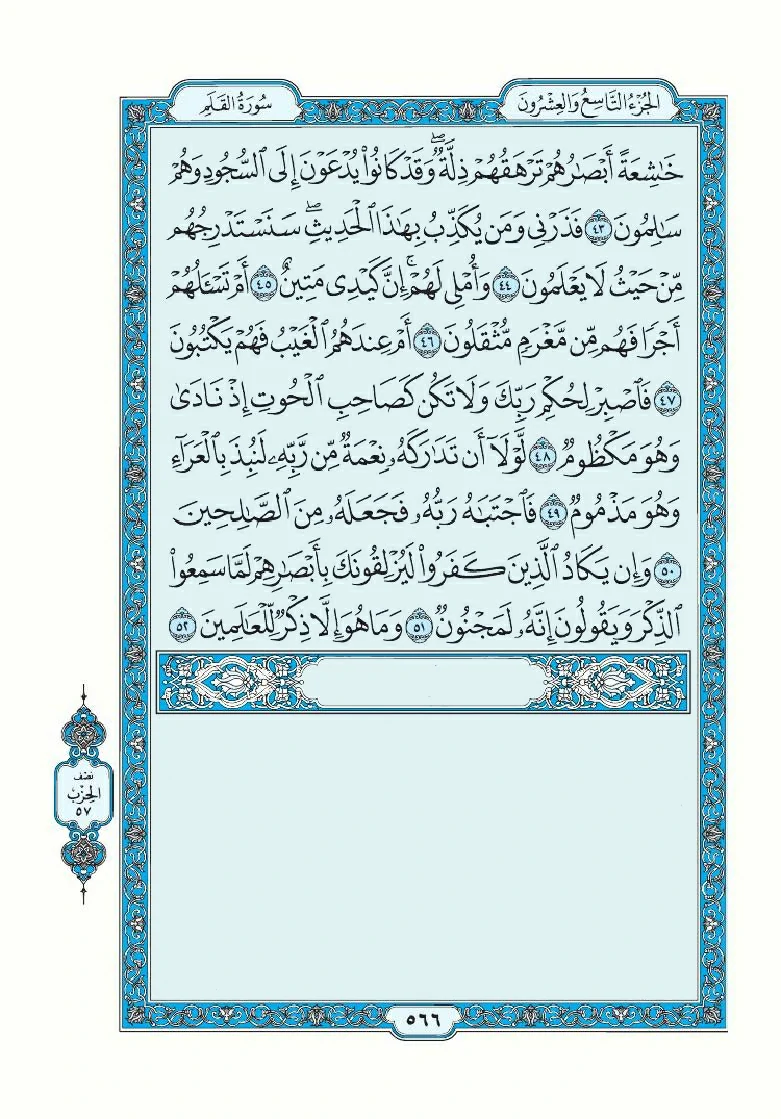 الجُزْءُ التَّاسِعُ وَالعِشْرُونَ
سُورَةُ القَلَمِ
خَٰشِعَةً أَبْصَٰرُهُمْ تَرْهَقُهُمْ ذِلَّةٌۖ وَقَدْ كَانُوا۟ يُدْعَوْنَ إِلَى ٱلسُّجُودِ وَهُمْ
سَٰلِمُونَ ٤٣ فَذَرْنِى وَمَن يُكَذِّبُ بِهَٰذَا ٱلْحَدِيثِۖ سَنَسْتَدْرِجُهُم
مِّنْ حَيْثُ لَا يَعْلَمُونَ ٤٤ وَأُمْلِى لَهُمْۚ إِنَّ كَيْدِى مَتِينٌ ٤٥ أَمْ تَسْـَٔلُهُمْ
أَجْرًا فَهُم مِّن مَّغْرَمٍ مُّثْقَلُونَ ٤٦ أَمْ عِندَهُمُ ٱلْغَيْبُ فَهُمْ يَكْتُبُونَ
٤٧ فَٱصْبِرْ لِحُكْمِ رَبِّكَ وَلَا تَكُن كَصَاحِبِ ٱلْحُوتِ إِذْ نَادَىٰ
وَهُوَ مَكْظُومٌ ٤٨ لَّوْلَآ أَن تَدَٰرَكَهُۥ نِعْمَةٌ مِّن رَّبِّهِۦ لَنُبِذَ بِٱلْعَرَآءِ
وَهُوَ مَذْمُومٌ ٤٩ فَٱجْتَبَٰهُ رَبُّهُۥ فَجَعَلَهُۥ مِنَ ٱلصَّٰلِحِينَ
٥٠ وَإِن يَكَادُ ٱلَّذِينَ كَفَرُوا۟ لَيُزْلِقُونَكَ بِأَبْصَٰرِهِمْ لَمَّا سَمِعُوا۟
ٱلذِّكْرَ وَيَقُولُونَ إِنَّهُۥ لَمَجْنُونٌ ٥١ وَمَا هُوَ إِلَّا ذِكْرٌ لِّلْعَٰلَمِينَ ٥٢
نصف
الحزب
٥٧
٥٦٦